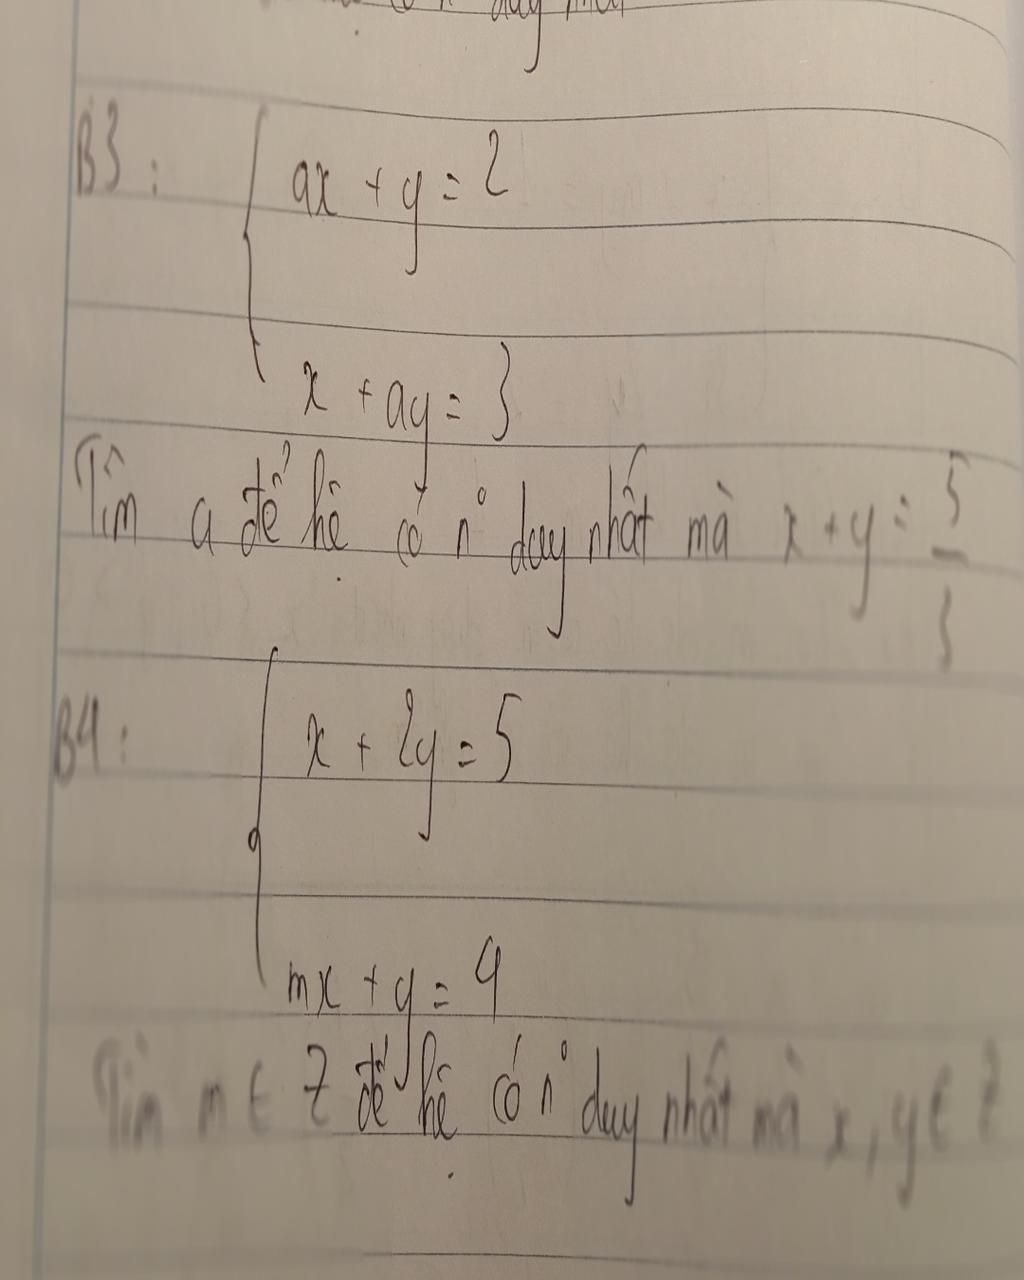 có n° duy nhất
B3: ax + y = 2
x + ay = 3
Tìm a để hệ có n° duy nhất mà x + y = 5/3
B4: x + 2y = 5
mx + y = 4
Tìm m ∈ Z để hệ có n° duy nhất mà x, y ∈ Z